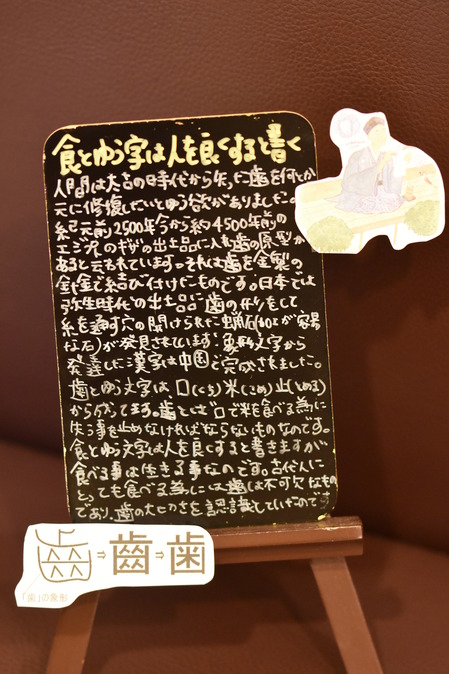 食とゆう字は人を良くすると書く
人間は太古の時代から失った歯を何とか
元に修復したいとゆう欲がありました。
紀元前2500年今から約4500年前の
エジプトのギザの出土品に人も歯の原型が
あると云われています。それは歯を金製の
針金で結び付けたものです。日本では
弥生時代の出土品に歯の形をして
糸を通す穴の開けられた蝋石(加工が容易
な石)が発見されています。象形文字から
発達した漢字は中国で完成されました。
歯とゆう文字は、口(くち)米(こめ)止(とめる)
から成ってます。歯とは口で米を食べる為に
失う事を止めなければならないものなのです。
食とゆう文字は人を良くすると書きますが
食べる事は生きる事なのです。古代人に
とっても食べる為には歯は不可欠なもの
であり、歯の大切さを認識していたのです
⇨齒⇨歯
「歯」の象形